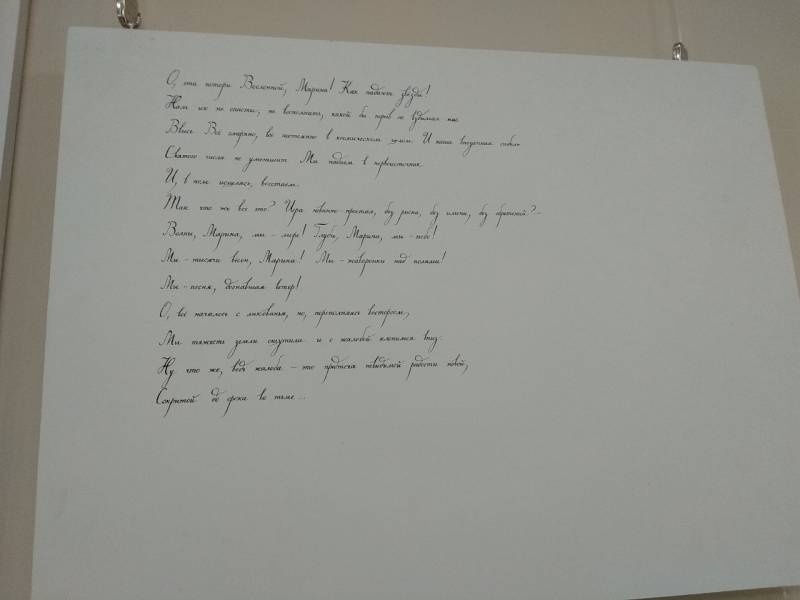 О, эти потери Вселенной, Марина! Как падают звезды!
Нам их не спасти, не восполнить, какой бы порыв не вздымал нас
Ввысь. Всё смерено, всё постоянно в космическом целом. И наша внезапная гибель
Святого числа не уменьшит. Мы падаем в первоисточник
И, в нём исцелясь, восстаем.
Так что же всё это? Игра невинно-простая, без риска, без имени, без обретений? -
Волны, Марина, мы - море! Глуби, Марина, мы - небо!
Мы - тысячи весен, Марина! Мы - жаворонки над полями!
Мы - песня, догнавшая ветер!
О, всё началось с ликованья, но, переполняясь восторгом,
Мы тяжесть земли ощутили и с жалобой клонимся вниз.
Ну что же, ведь жалоба - это предтеча невидимой радости новой,
Сокрытой до срока во тьме...